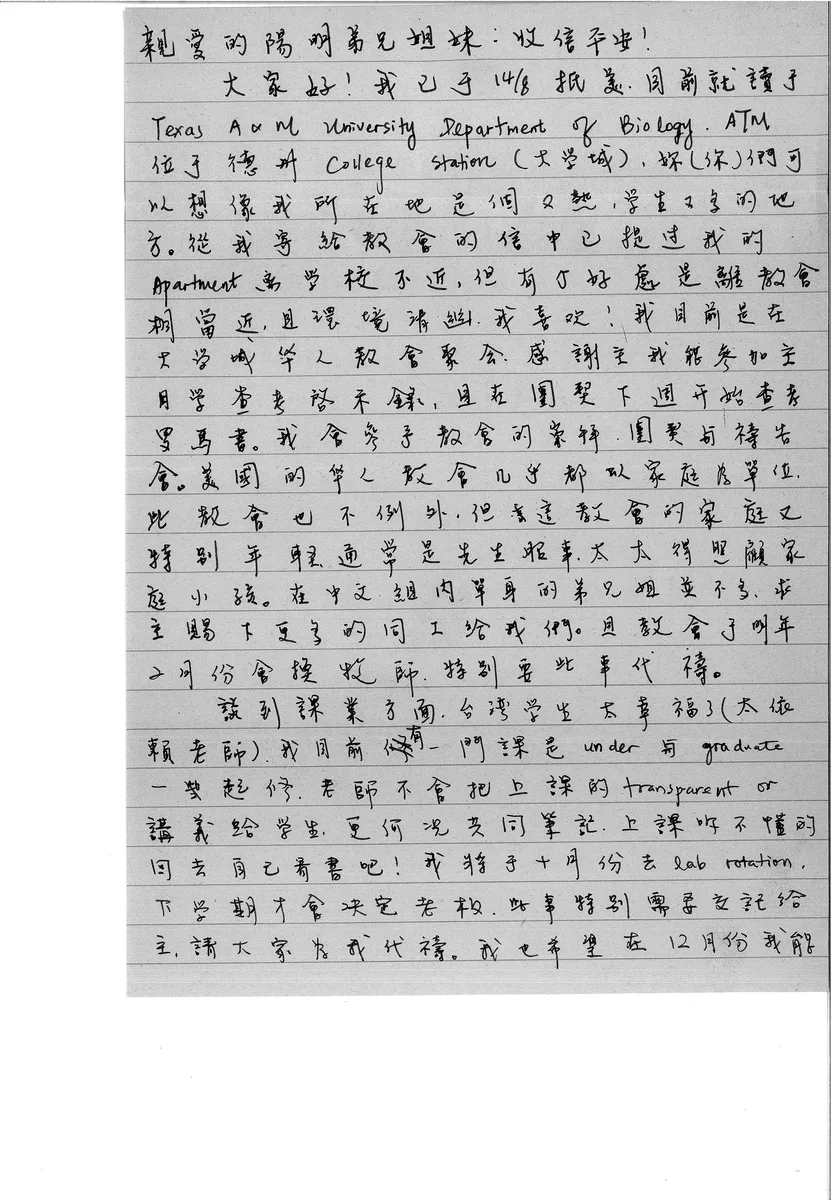 親愛的陽明弟兄姐妹：收信平安！
大家好！我已于14/8抵美，目前就讀于
Texas A&M University Department of Biology. ATM
位于德州 College Station（大学城），妳（你）們可
以想像我所在地是個又熱，学生又多的地
方。從我寄給教會的信中已提过我的
Apartment 离学校不近，但有个好處是離教會
相當近，且環境清幽，我喜欢！我目前是在
大学城华人教會聚会，感謝主我能參加主
日学查考啓示錄，且在團契下週开始查考
罗馬書。我會參予教會的崇拜，團契与禱告
會。美國的华人教會几乎都以家庭為單位，
此教會也不例外，但去這教會的家庭又
特别年輕，通常是先生服事，太太得照顧家
庭小孩。在中文組内單身的弟兄姐並不多，求
主賜下更多的同工給我們。且教會于明年
2月份會換牧師，特别要此事代禱。
談到課業方面，台湾学生太幸福了（太依
賴老師），我目前有一門課是 under 与 graduate
一起修，老師不會把上課的 transparent or
講義給学生，更何況共同筆記，上課听不懂的
回去自己看書吧！我将于十月份去 lab rotation,
下学期才會决定老板，此事特别需要交託給
主，請大家为我代禱。我也希望在12月份我能